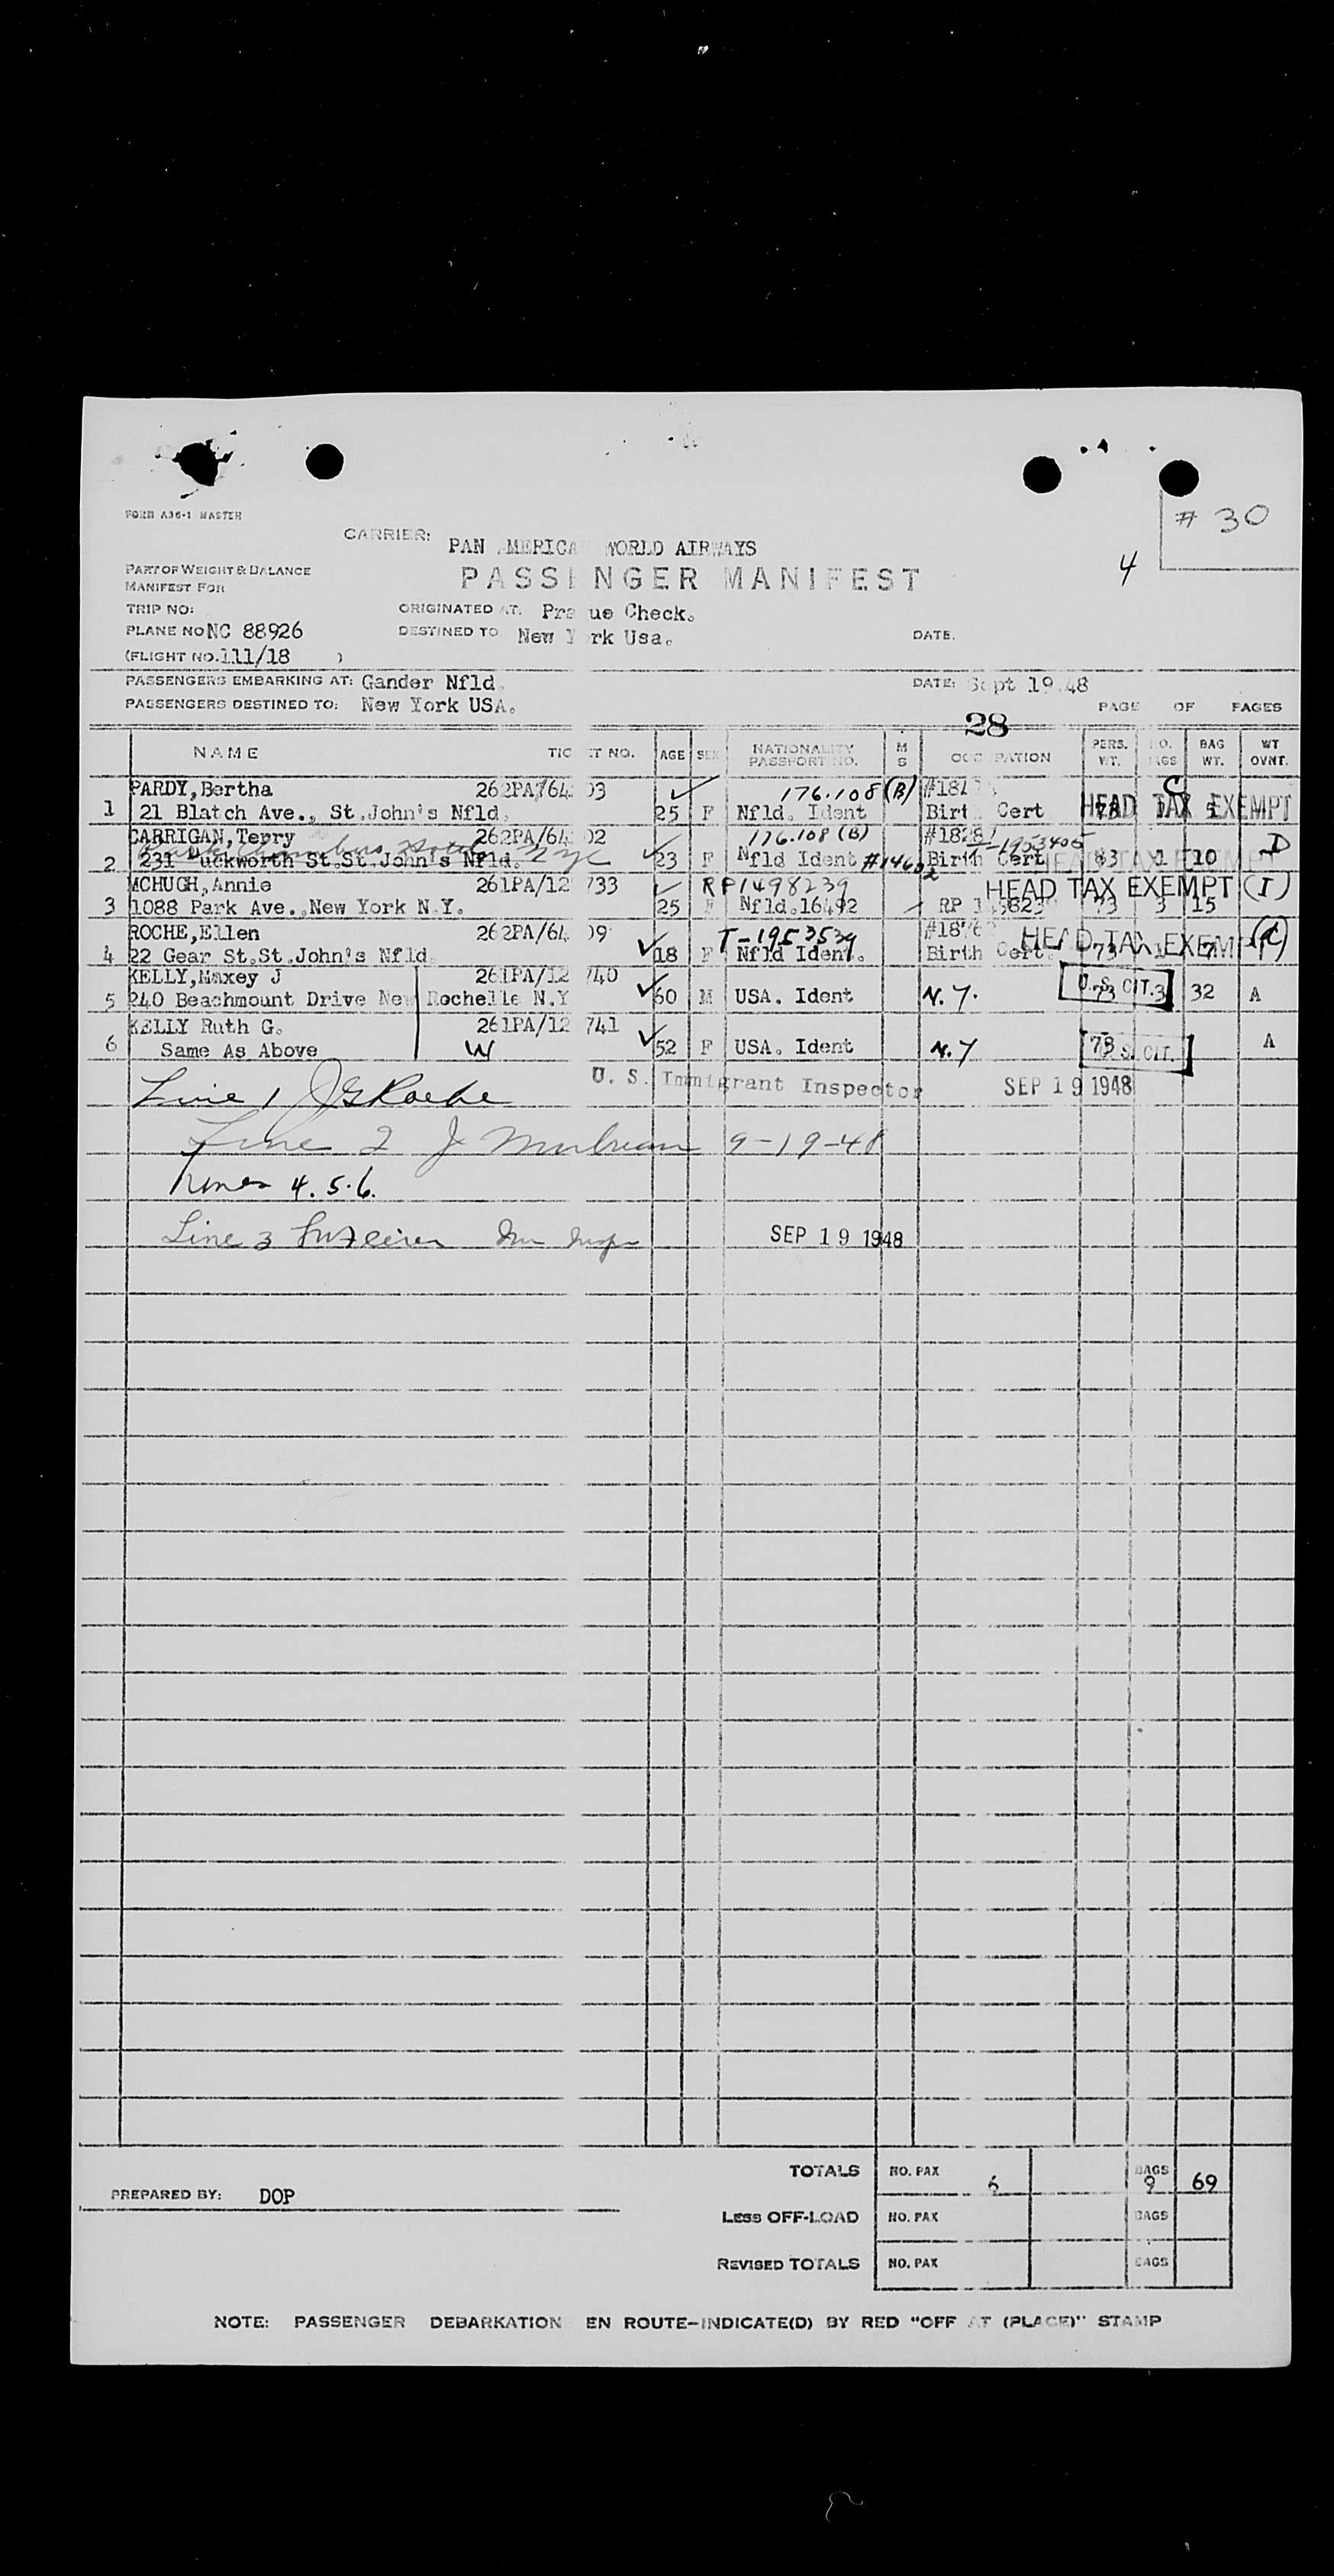 # 30
4
FORM A36-1 MASTER
CARRIER: PAN AMERICA WORLD AIRWAYS
PART OF WEIGHT & BALANCE
MANIFEST FOR
PASSENGER MANIFEST
TRIP NO: ORIGINATED AT. Pra ue Check.
PLANE NO NC 88926 DESTINED TO New Y rk Usa. DATE.
(FLIGHT NO. 111/18 )
PASSENGERS EMBARKING AT: Gander Nfld. DATE: Sept 19.48
PASSENGERS DESTINED TO: New York USA. PAGE OF PAGES
28
NAME TICKET NO. AGE SEX NATIONALITY PASSPORT NO. M S OCCUPATION PERS. WT. NO. BAGS BAG WT. WT OVNT.
PARDY, Bertha 262PA/64 03 176.108 (B) C
1 21 Blatch Ave., St.John's Nfld. 25 F Nfld. Ident Birt Cert 73 HEAD TAX EXEMPT
CARRIGAN, Terry 262PA/64 02 176.108 (B) T-1953405 D
2 231 Duckworth St.St.John's Nfld. NYC 23 F Nfld Ident Birth Cert 83 1 10 HEAD TAX EXEMPT
MCHUGH, Annie 261PA/12 733 RP1498239 HEAD TAX EXEMPT (I)
3 1088 Park Ave., New York N.Y. 25 F Nfld.16492 RP 73 3 15
ROCHE, Ellen 262PA/64 09 T-1953539 HEAD TAX EXEMPT
4 22 Gear St.St.John's Nfld. 18 F Nfld Ident. Birth Cert. 73 1 7
KELLY, Maxey J 261PA/12 740 U.S. CIT.
5 240 Beachmount Drive New Rochelle N.Y 60 M USA. Ident N.Y. 73 3 32 A
KELLY Ruth G. 261PA/12 741
6 Same As Above W 52 F USA. Ident N.Y 73 U.S. CIT. A
Line 1 U. S. Immigrant Inspector SEP 19 1948
Line 2 9-19-48
Lines 4.5.6.
Line 3 SEP 19 1948
TOTALS NO. PAX 6 BAGS 9 69
PREPARED BY: DOP
LESS OFF-LOAD NO. PAX BAGS
REVISED TOTALS NO. PAX BAGS
NOTE: PASSENGER DEBARKATION EN ROUTE-INDICATE(D) BY RED "OFF AT (PLACE)" STAMP